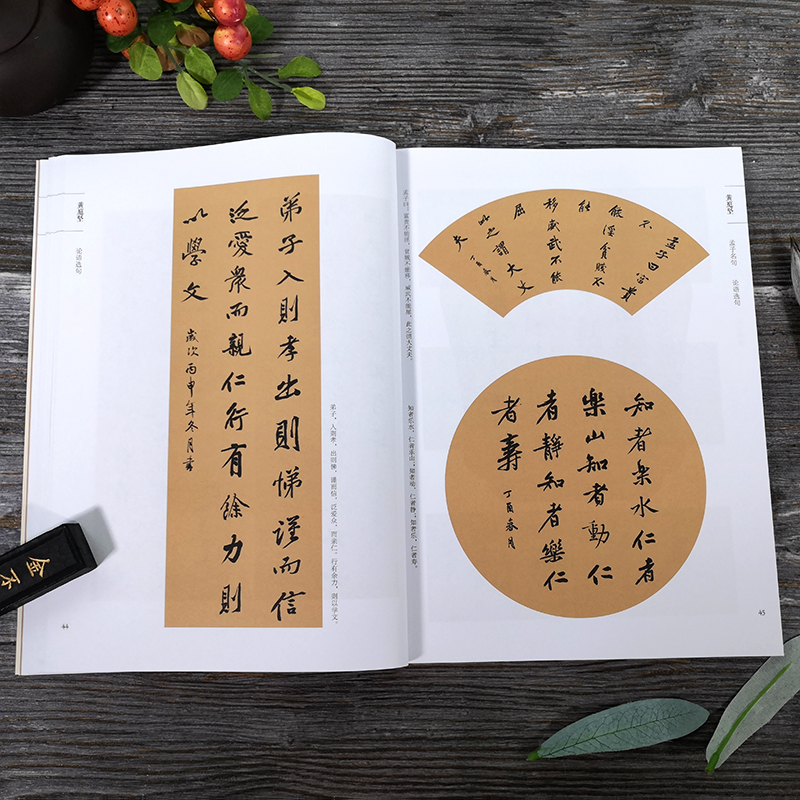 黄庭坚
论语选句
弟子入則孝出則悌謹而信
泛愛衆而親仁行有餘力則
以學文
歲次丙申年冬月書
弟子，入则孝，出则悌，谨而信，泛爱众，而亲仁。行有余力，则以学文。
44
黄庭坚
孟子名句
论语选句
孟子曰富貴
不
能淫貧賤不
能
移威武不能
屈
此之謂大丈
夫
丁酉春月
孟子曰：富贵不能淫，贫贱不能移，威武不能屈，此之谓大丈夫。
知者楽水仁者
楽山知者動仁
者靜知者樂仁
者壽
丁酉春月
知者乐水，仁者乐山；知者动，仁者静；知者乐，仁者寿。
45
金不